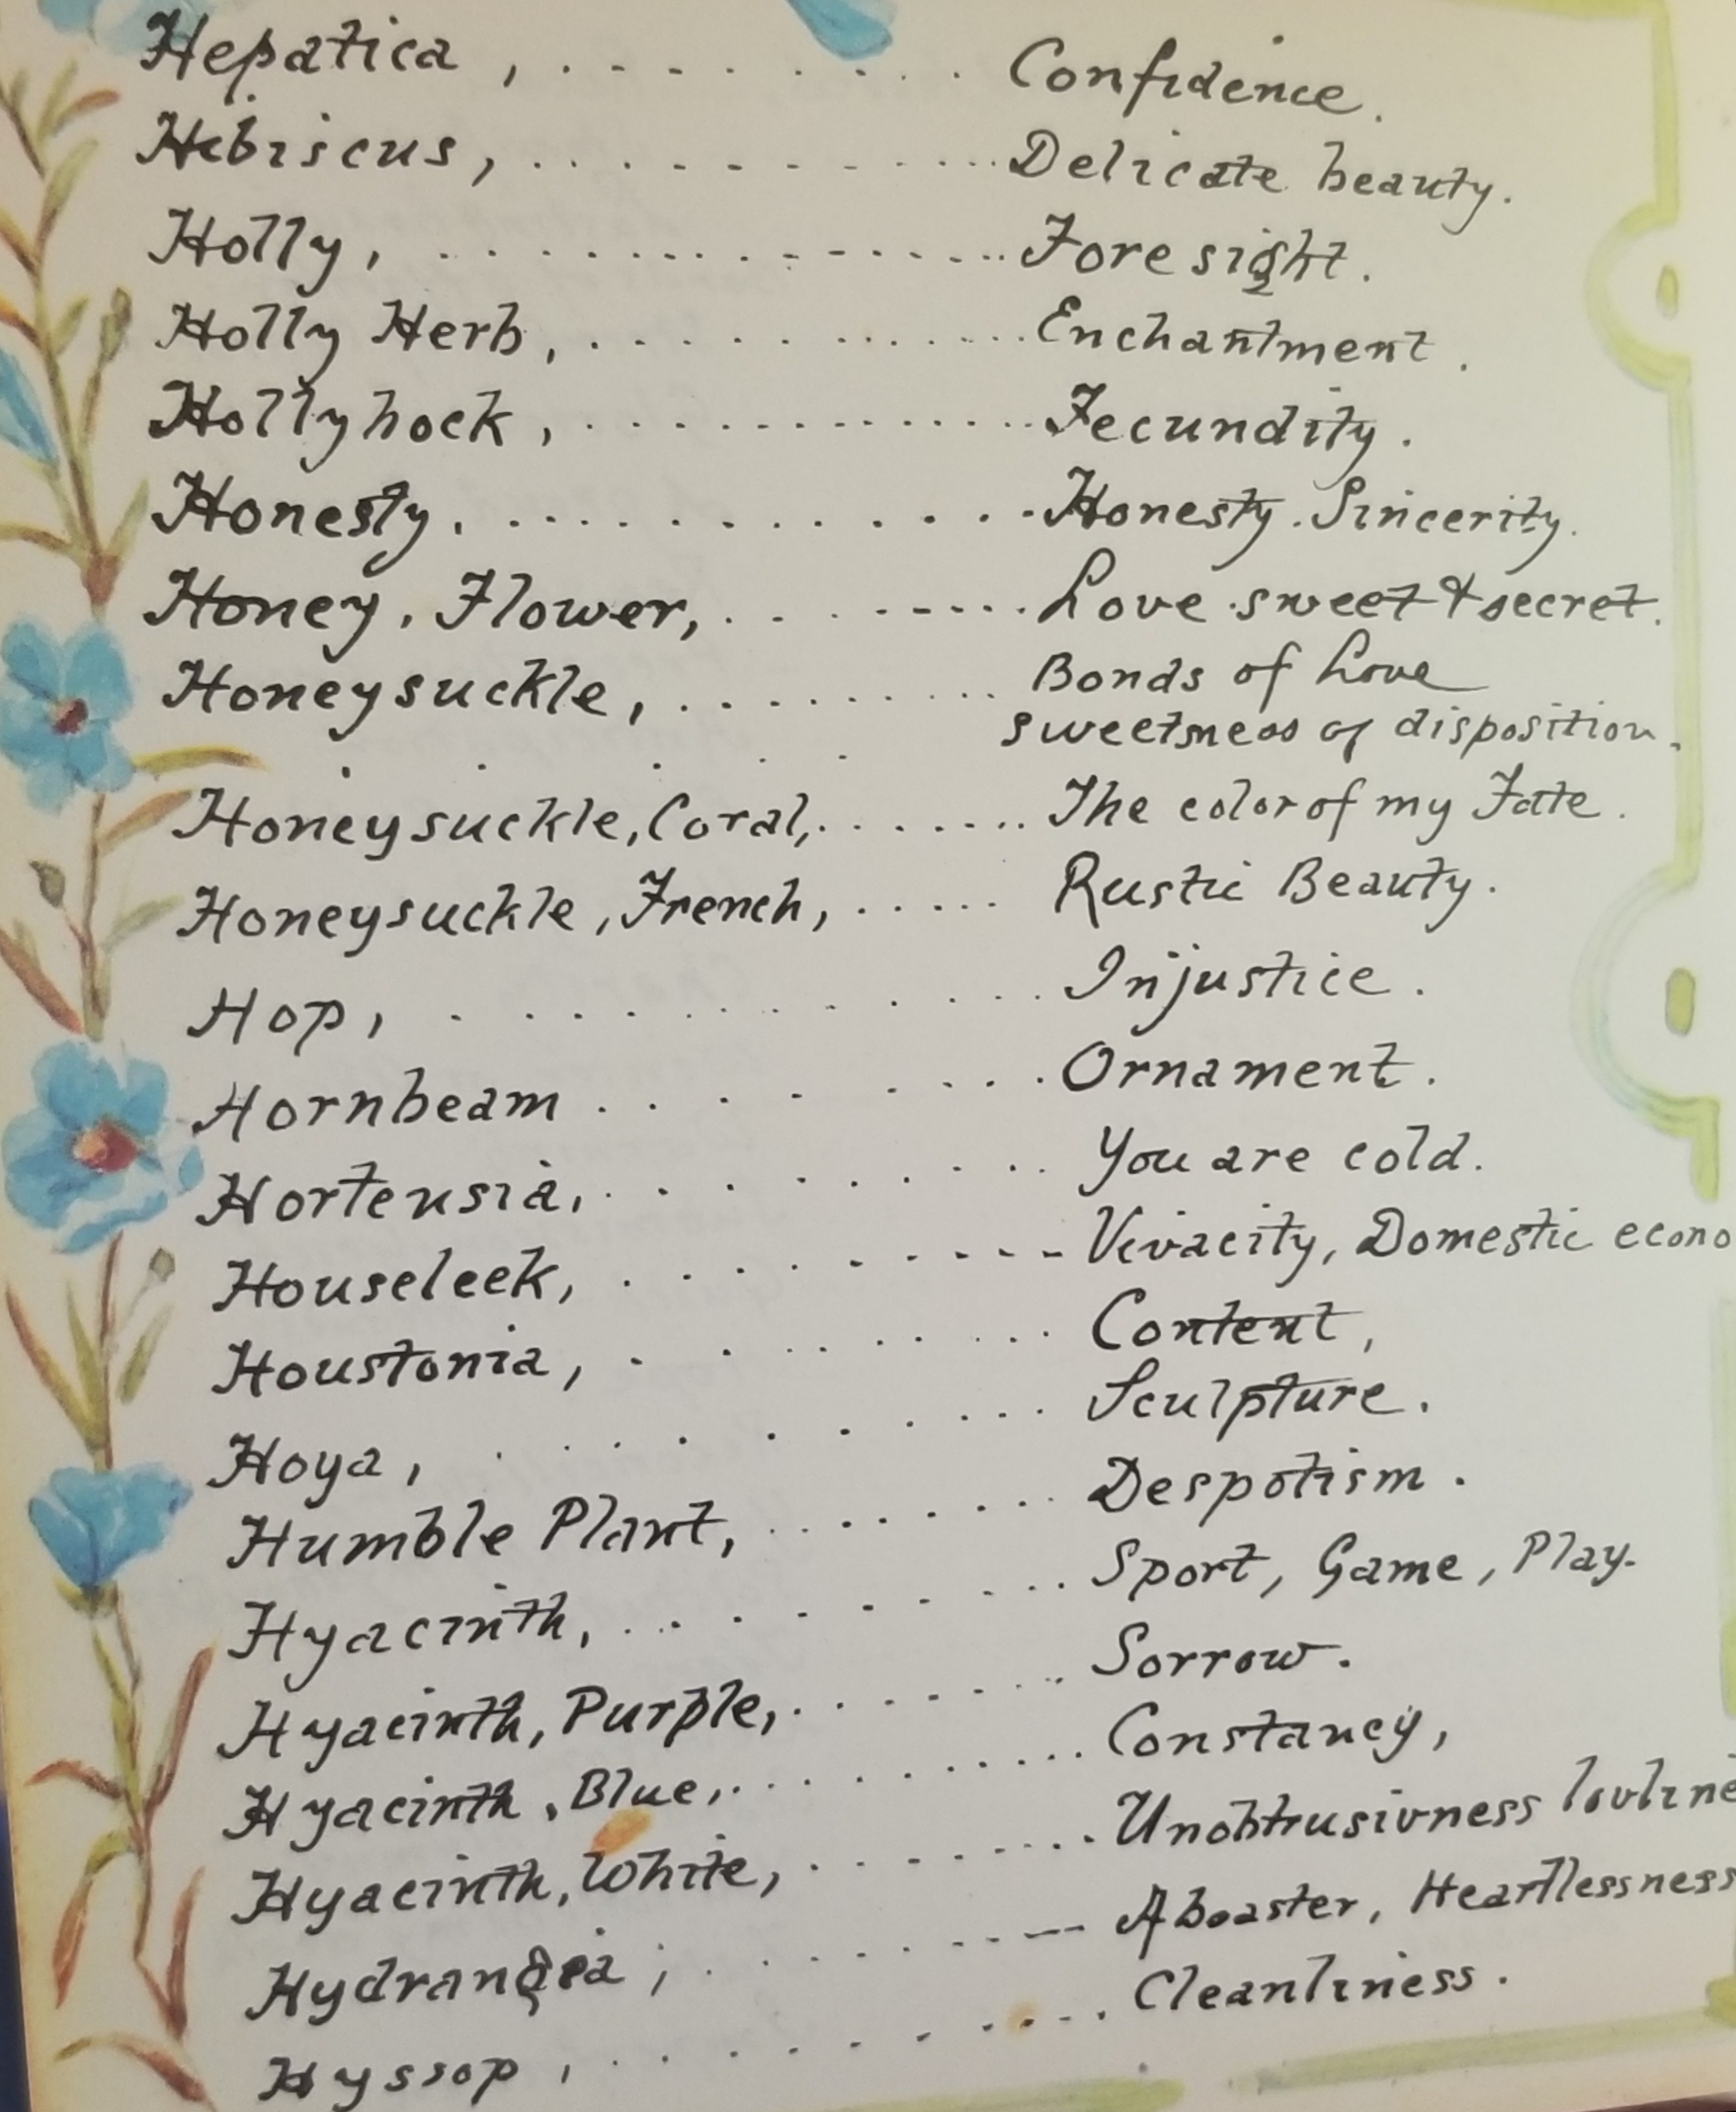 Hepatica, .......... Confidence.
Hibiscus, .......... Delicate beauty.
Holly, .......... Foresight.
Holly Herb, .......... Enchantment.
Hollyhock, .......... Fecundity.
Honesty. .......... Honesty. Sincerity.
Honey. Flower, .......... Love sweet & secret.
Honeysuckle, .......... Bonds of Love
sweetness of disposition.
Honeysuckle, Coral, .......... The color of my Fate.
Honeysuckle, French, ...... Rustic Beauty.
Hop, .......... Injustice.
Hornbeam .......... Ornament.
Hortensia, .......... You are cold.
Houseleek, .......... Vivacity, Domestic econo
Houstonia, .......... Content,
Hoya, .......... Sculpture.
Humble Plant, .......... Despotism.
Hyacinth, .......... Sport, Game, Play.
Hyacinth, Purple, .......... Sorrow.
Hyacinth, Blue, .......... Constancy,
Hyacinth, White, .......... Unobtrusivness lovline
Hydrangea, .......... A boaster, Heartlessness
Hyssop, .......... Cleanliness.